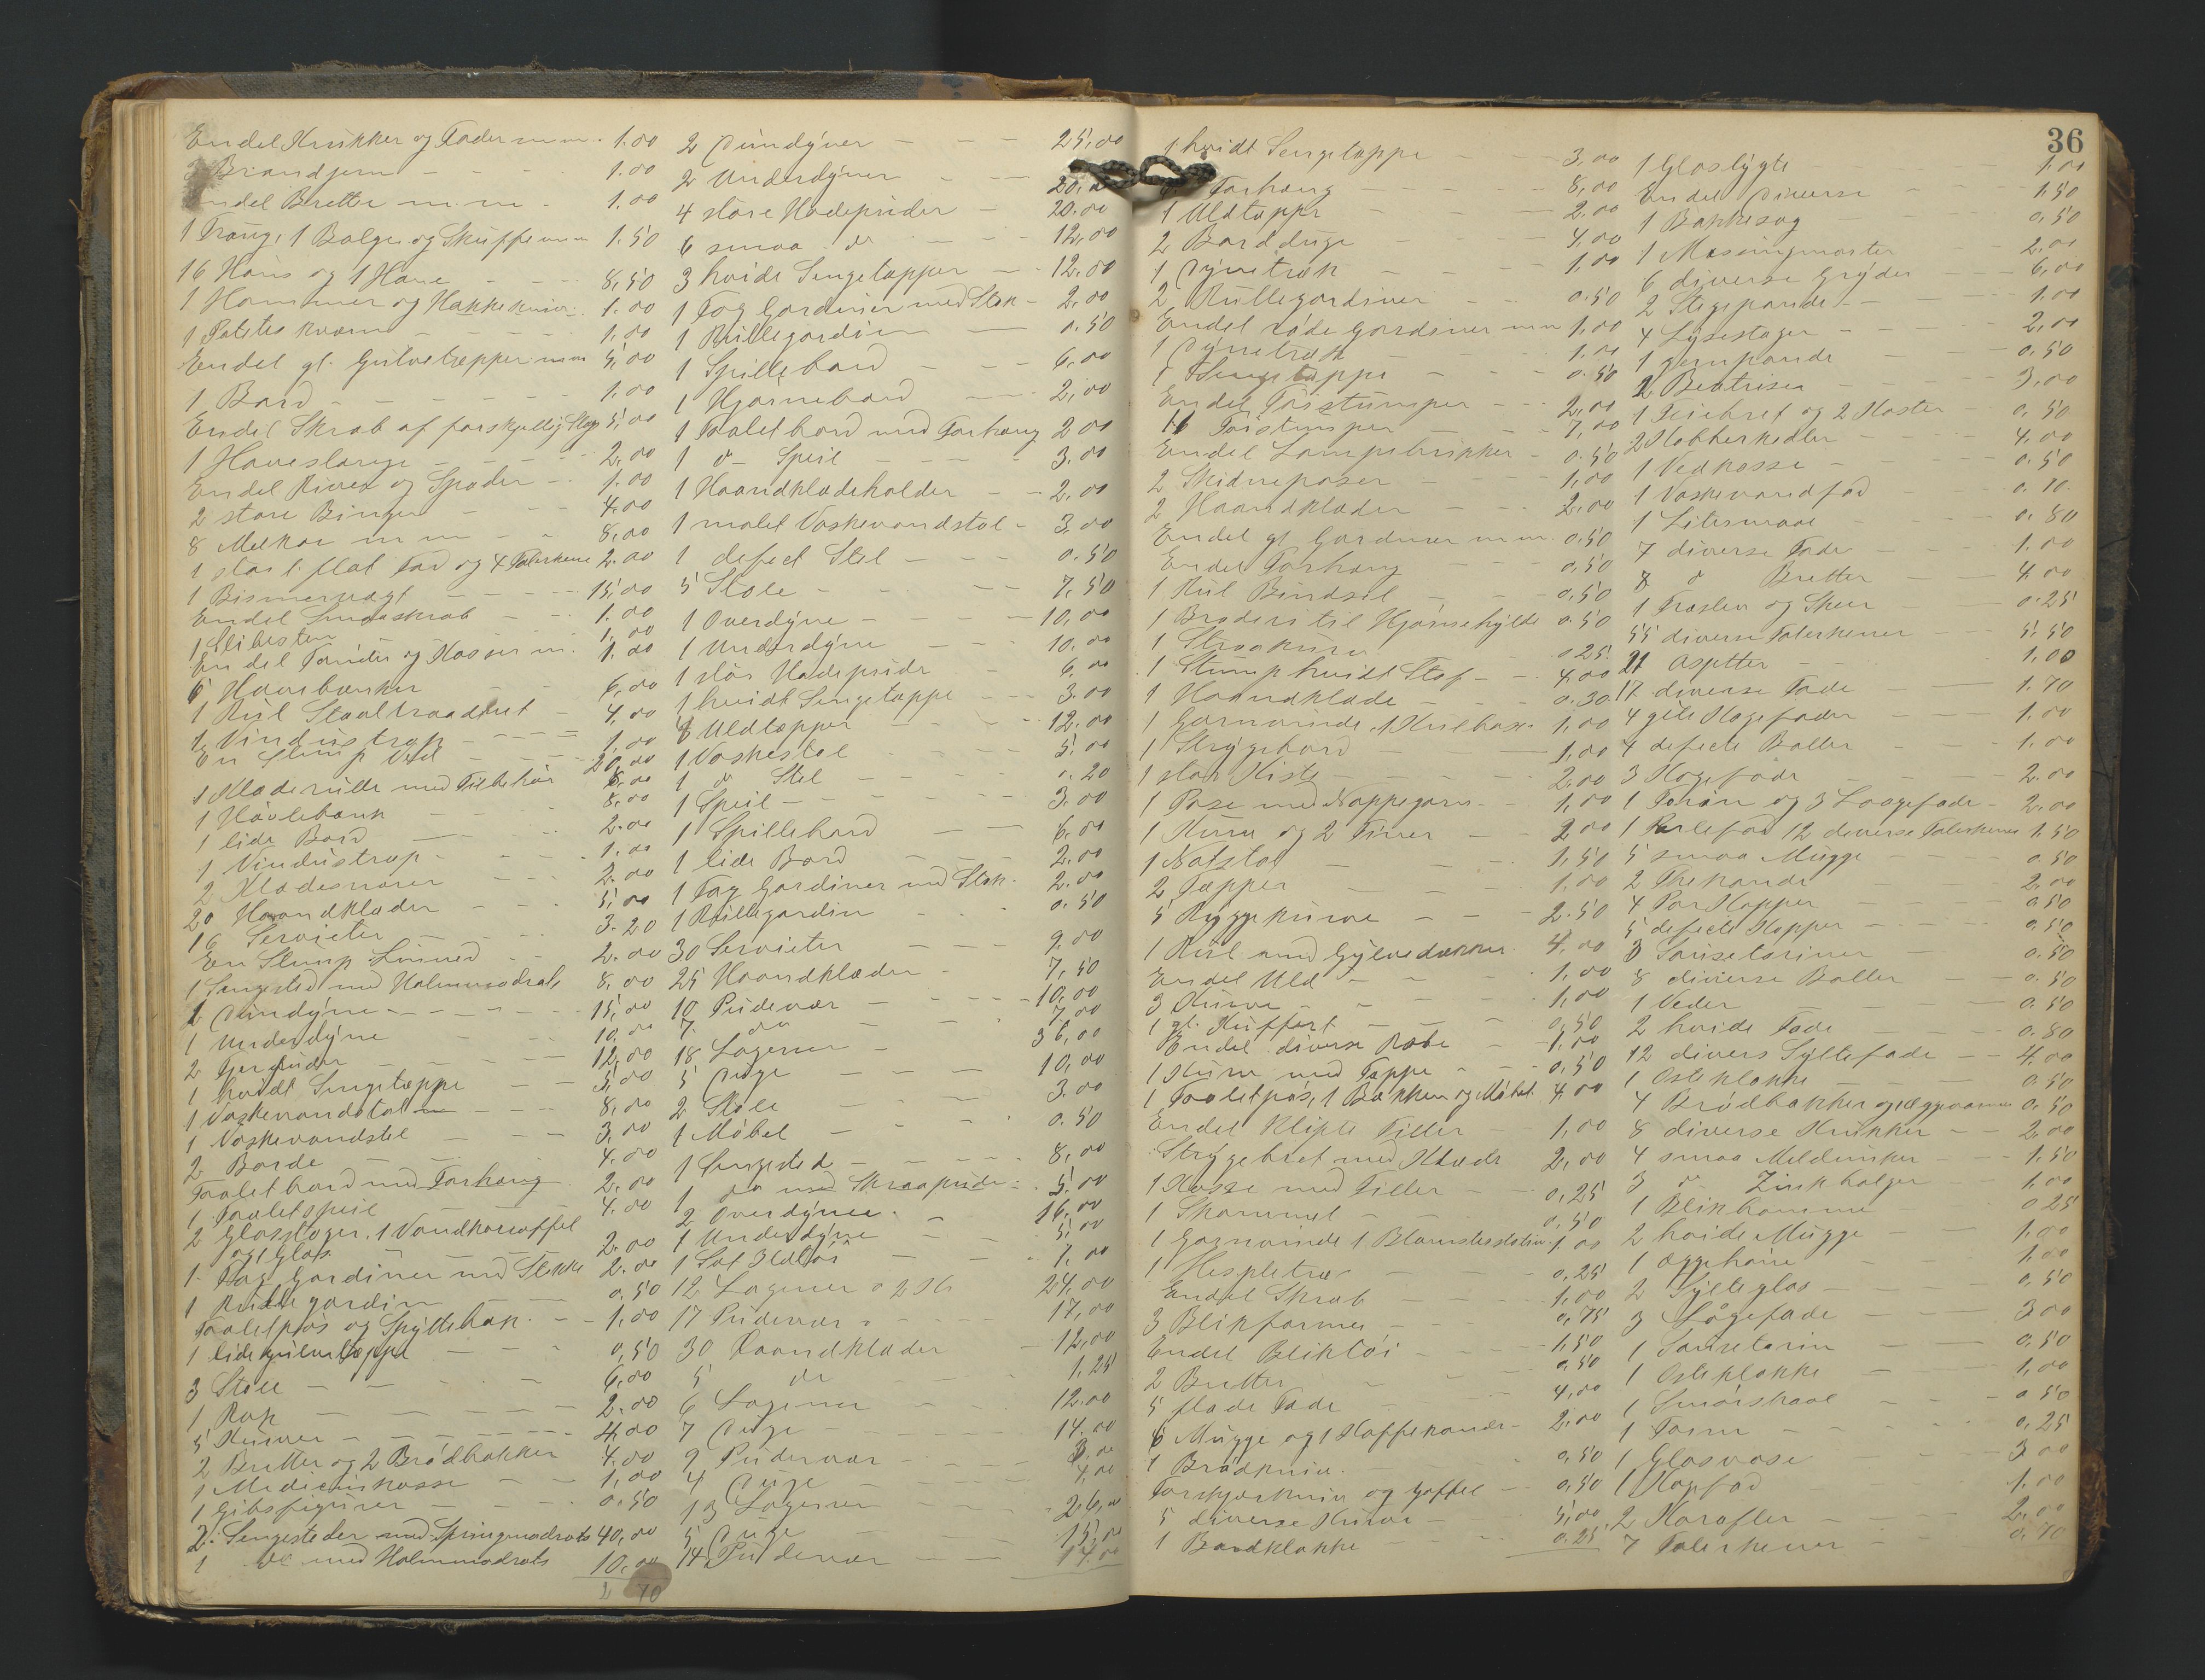 Endel Krukker og Fader m.m. 1.00
Brandjern 1.00
Endel Bretter m.m. 1.00
1 Traug, 1 Balge og Skuffe m.m 1.50
16 Høns og 1 Hane 8,50
1 Hammer og Hakkekniv 1.00
1 kværn 1.00
Endel gl. Gulvetæpper m.m 5,00
1 Bord 1.00
Endel Skrab af forskjellig Slags 5,00
1 Haveslange 2,00
Endel River og Spader 1.00
2 store Binger 4,00
8 Melkar m.m 8,00
1 stort flat Fad og 4 Talerkene 2.00
1 Bismervægt 15,00
Endel Smaaskrab 1.00
1 Slibesten 1,00
Endel Tønder og Kasser m. 1.00
6 Havebænker 6,00
1 Rul Staaltraadnet 4,00
1 Vindustrap 1,00
En Slump Ved 20,00
1 Klæderulle med Tilbehør 8,00
1 Høvlebænk 8,00
1 lide Bord 2.00
1 Vindustrap 1.00
2 Klædesnorer 2.00
20 Haandklæder 5,00
16 Servieter 3.20
En Slump Linned 2.00
1 Sengested med Halmmadrats 8,00
1 Dundyne 15,00
1 Underdyne 10,00
2 Fjerpuder 12,00
1 hvidt Sengetæppe 5,00
1 Vaskevandstol 8,00
1 Vaskevandstel 3,00
2 Borde 4.00
Toaletbord med Forhæng 2.00
1 Toaletspeil 4.00
2 Glasstager, 1 Vandkaraffel
og 1 Glas 2.00
1 Fag Gardiner med Stokke 2.00
1 Rullegardin 0,50
Toaletpøs og Spyttebak 1,00
1 lide gulvetæppe 0,50
3 Stole 6,00
1 Rok 2.00
5 Kurver 4,00
2 Bretter og 2 Brødbakker 4,00
1 Medicinkasse 1,00
1 Gibsfigurer 0.50
2 Sengesteder med Springmadrats 40,00
1 do med Halmmadrats 10.00
2 70
2 Dundyner 25,00
2 Underdyner 20,00
4 store Hodepuder 20.00
6 smaa do 12,00
3 hvide Sengetæpper 12,00
1 Fag Gardiner med Stok 2,00
1 Rullegardin 0.50
1 Spillebord 6,00
1 Hjørnebord 2,00
1 Toaletbord med Forhæng 2 00
1 do Speil 3.00
1 Haandklædeholder 2,00
1 malet Vaskevandstol 3,00
1 defect Stel 0.50
5 Stole 7,50
1 Overdyne 10,00
1 Underdyne 10.00
1 stor Hodepude 6.00
1 hvidt Sengetæppe 3.00
8 Uldtæpper 12,00
1 Vaskestol 5.00
1 do Stel 0.20
1 Speil 3.00
1 Spillebord 6.00
1 lide Bord 2.00
1 Fag Gardiner med Stok 2.00
1 Rullegardin 0.50
30 Servieter 9.00
25 Haandklæder 7,50
10 Pudevær 10,00
7 do 7.00
18 Lagener 36,00
5 Duge 10,00
2 Stole 3.00
1 Møbel 0.50
1 Sengested 8,00
1 do med Skraapude 5.00
2 Overdyner 16,00
1 Underdyne 5,00
1 Sæt 1.00
12 Lagener a 2 Kr 24,00
17 Pudevær 17,00
30 Haandklæder 12,00
5 do 1.25
6 Lagener 12.00
7 Duge 14.00
9 Pudevær
4 Duge 4,00
13 Lagener 26,00
5 Duge 15,00
14 Pudevær 14.00
36
1 hvidt Sengetæppe 3,00
Forhæng 8,00
1 Uldtæppe 2.00
2 Bordduge 4,00
1 Dynetræk 1,00
2 Rullegardiner 0.50
Endel røde Gardiner m.m 1,00
1 Dynetræk 1.00
1 Sengetæppe 0.50
Endel Tøistumper 2,00
16 Tøistumper 7,00
Endel Lampekupper 0.50
2 Skidneposer 1,00
2 Haandklæder 2.00
Endel gl. Gardiner m.m. 0.50
Endel Forhæng 0,50
1 Rul Bindsel 0,50
1 Broderi til Hjørnehylde 0.50
1 Straakurv 0.25
1 Stump hvidt Stof 4,00
1 Haandklæde 0.30
1 Garnvinde, 1 1,00
1 Strygebord 1,00
1 stor Kiste 2,00
1 Pose med Noppegarn 1,00
1 Kurv og 2 Tiner 2,00
1 Natstol 1,50
2 Tæpper 1,00
5 Ryggekurve 2.50
1 Rul med Gulvedækker 4,00
Endel Uld 1,00
3 Kurve 1,00
1 gl. Kuffert 0,50
Endel diverse Reb 1,00
1 Kurv med Tæppe 0,50
1 Toaletpøs, 1 Bækken og Møbel 4,00
Endel klipte Filler 1,00
Strygebret med Klæde 2,00
1 Kasse med Filler 0,25
1 Skammel 0,50
1 Garnvinde 1 Blomsterstativ 1.00
1 Hespletræ 0,25
Endel Skrab 1,00
3 Blikformer 0,75
Endel Bliktøi 1,50
2 Bretter 0,50
5 flade Fade 4,00
6 Mugge og 1 Kaffekande 2,00
1 Brødkniv 0,50
Forskjærkniv og Gaffel 0,50
5 diverse Knive 5,00
1 Bordklokke 0.25
1 Glaslygte 1.00
Endel Diverse 1.50
1 Bakkesag 0,50
1 Messingmorter 2,00
6 diverse Gryder 6,00
2 Stegepande 1.00
4 Lysestager 2,00
1 Jernpande 0.50
2 Beatriser 3,00
1 og 2 Koster 0,50
2 Kobberkedler 4,00
1 Vedkasse 0.50
1 Vaskevandfad 0.10
1 Litermaal 0.80
7 diverse Fade 1.00
8 do Bretter 4.00
1 Træslev og Skeer 0.25
55 diverse Talerkener 5,50
21 Asjetter 1,00
17 diverse Fade 1.70
4 gule Kagefader 1,00
4 defecte Boller 1.00
3 Kagefade 2.00
1 Terin og 3 Laagefade 2.00
1 12 diverse Talerkener 1.50
5 smaa Mugge 0.50
2 Thekande 2,00
4 Par Kopper 0.50
5 defecte Kopper 0,50
3 Sauseteriner 0,50
8 diverse Boller 0.50
1 Veder 0.50
2 hvide Fade 0.80
12 divers Syltefade 4,00
1 Osteklokke 0.50
4 Brødbakker og Eggevarmer 0,50
8 diverse Krukker 2,00
4 smaa 1,50
3 do Zinkbalger 1.00
1 Blikkomme 0 25
2 hvide Mugge 1.00
1 Eggehøne 1,00
2 Sylteglas 0,50
3 Lågefade 3.00
1 Sauseterin 0,50
1 Osteklokke 1,00
1 Smørskaal 0.50
1 Terin 0,25
1 Glasvase 3.00
1 Kagfad 1.00
2 Karafler 2,00
7 Talerkener 0.70